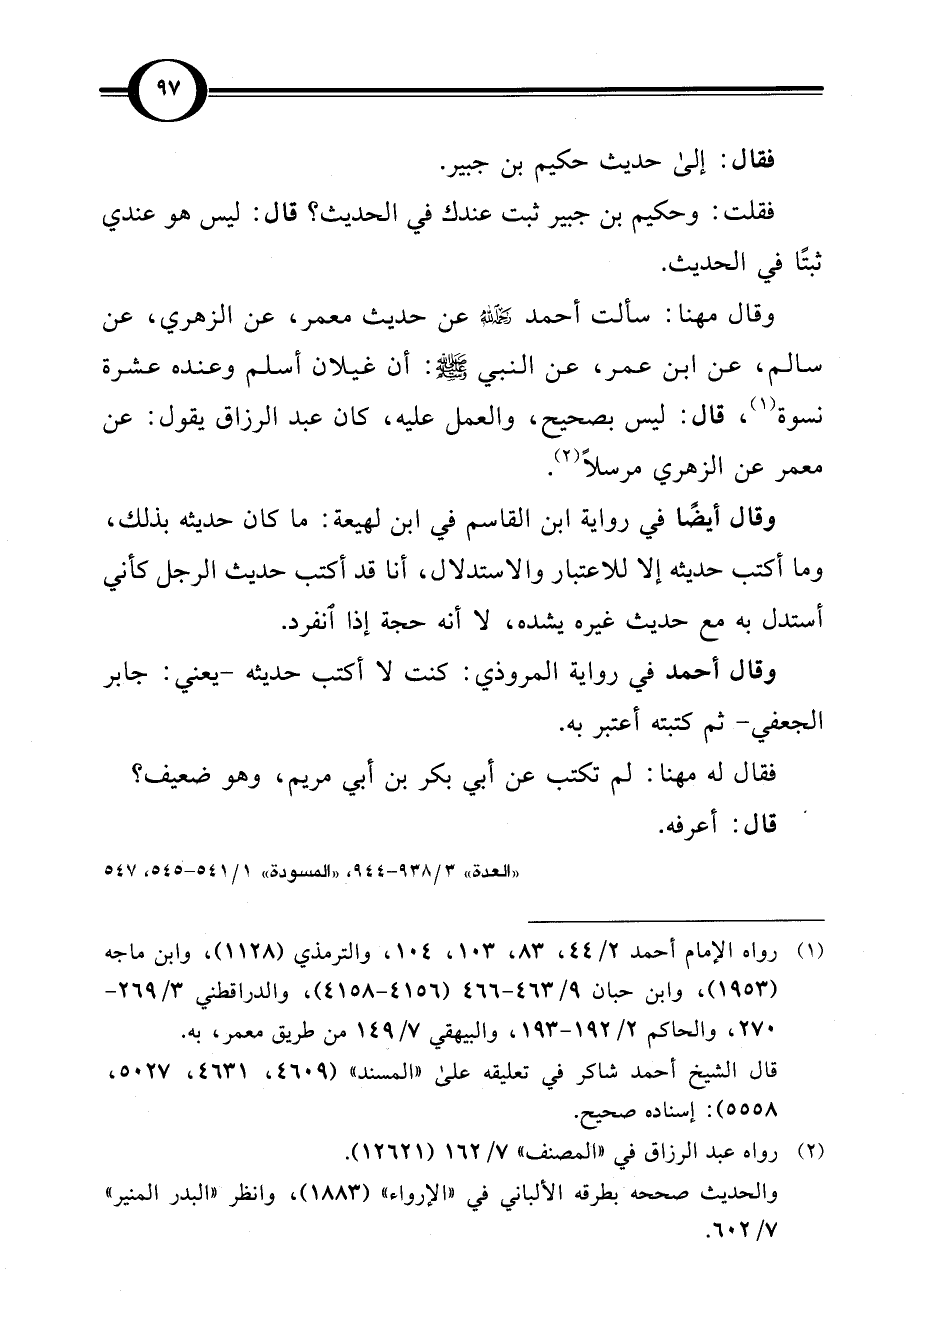 ٩٧
فقال: إلىٰ حديث حكيم بن جبير.
فقلت: وحكيم بن جبير ثبت عندك في الحديث؟ قال: ليس هو عندي
ثبتًا في الحديث.
وقال مهنا: سألت أحمد رَحِمَهُ اللهُ عن حديث معمر، عن الزهري، عن
سالم، عن ابن عمر، عن النبي ﷺ: أن غيلان أسلم وعنده عشرة
نسوة(١)، قال: ليس بصحيح، والعمل عليه، كان عبد الرزاق يقول: عن
معمر عن الزهري مرسلاً(٢).
وقال أيضًا في رواية ابن القاسم في ابن لهيعة: ما كان حديثه بذلك،
وما أكتب حديثه إلا للاعتبار والاستدلال، أنا قد أكتب حديث الرجل كأني
أستدل به مع حديث غيره يشده، لا أنه حجة إذا ٱنفرد.
وقال أحمد في رواية المروذي: كنت لا أكتب حديثه -يعني: جابر
الجعفي- ثم كتبته أعتبر به.
فقال له مهنا: لم تكتب عن أبي بكر بن أبي مريم، وهو ضعيف؟
قال: أعرفه.
«العدة» ٣/ ٩٣٨-٩٤٤، «المسودة» ١/ ٥٤١-٥٤٥، ٥٤٧
(١) رواه الإمام أحمد ٢/ ٤٤، ٨٣، ١٠٣، ١٠٤، والترمذي (١١٢٨)، وابن ماجه
(١٩٥٣)، وابن حبان ٩/ ٤٦٣-٤٦٦ (٤١٥٦-٤١٥٨)، والدراقطني ٣/ ٢٦٩-
٢٧٠، والحاكم ٢/ ١٩٢-١٩٣، والبيهقي ٧/ ١٤٩ من طريق معمر، به.
قال الشيخ أحمد شاكر في تعليقه علىٰ «المسند» (٤٦٠٩، ٤٦٣١، ٥٠٢٧،
٥٥٥٨): إسناده صحيح.
(٢) رواه عبد الرزاق في «المصنف» ٧/ ١٦٢ (١٢٦٢١).
والحديث صححه بطرقه الألباني في «الإرواء» (١٨٨٣)، وانظر «البدر المنير»
٧/ ٦٠٢.